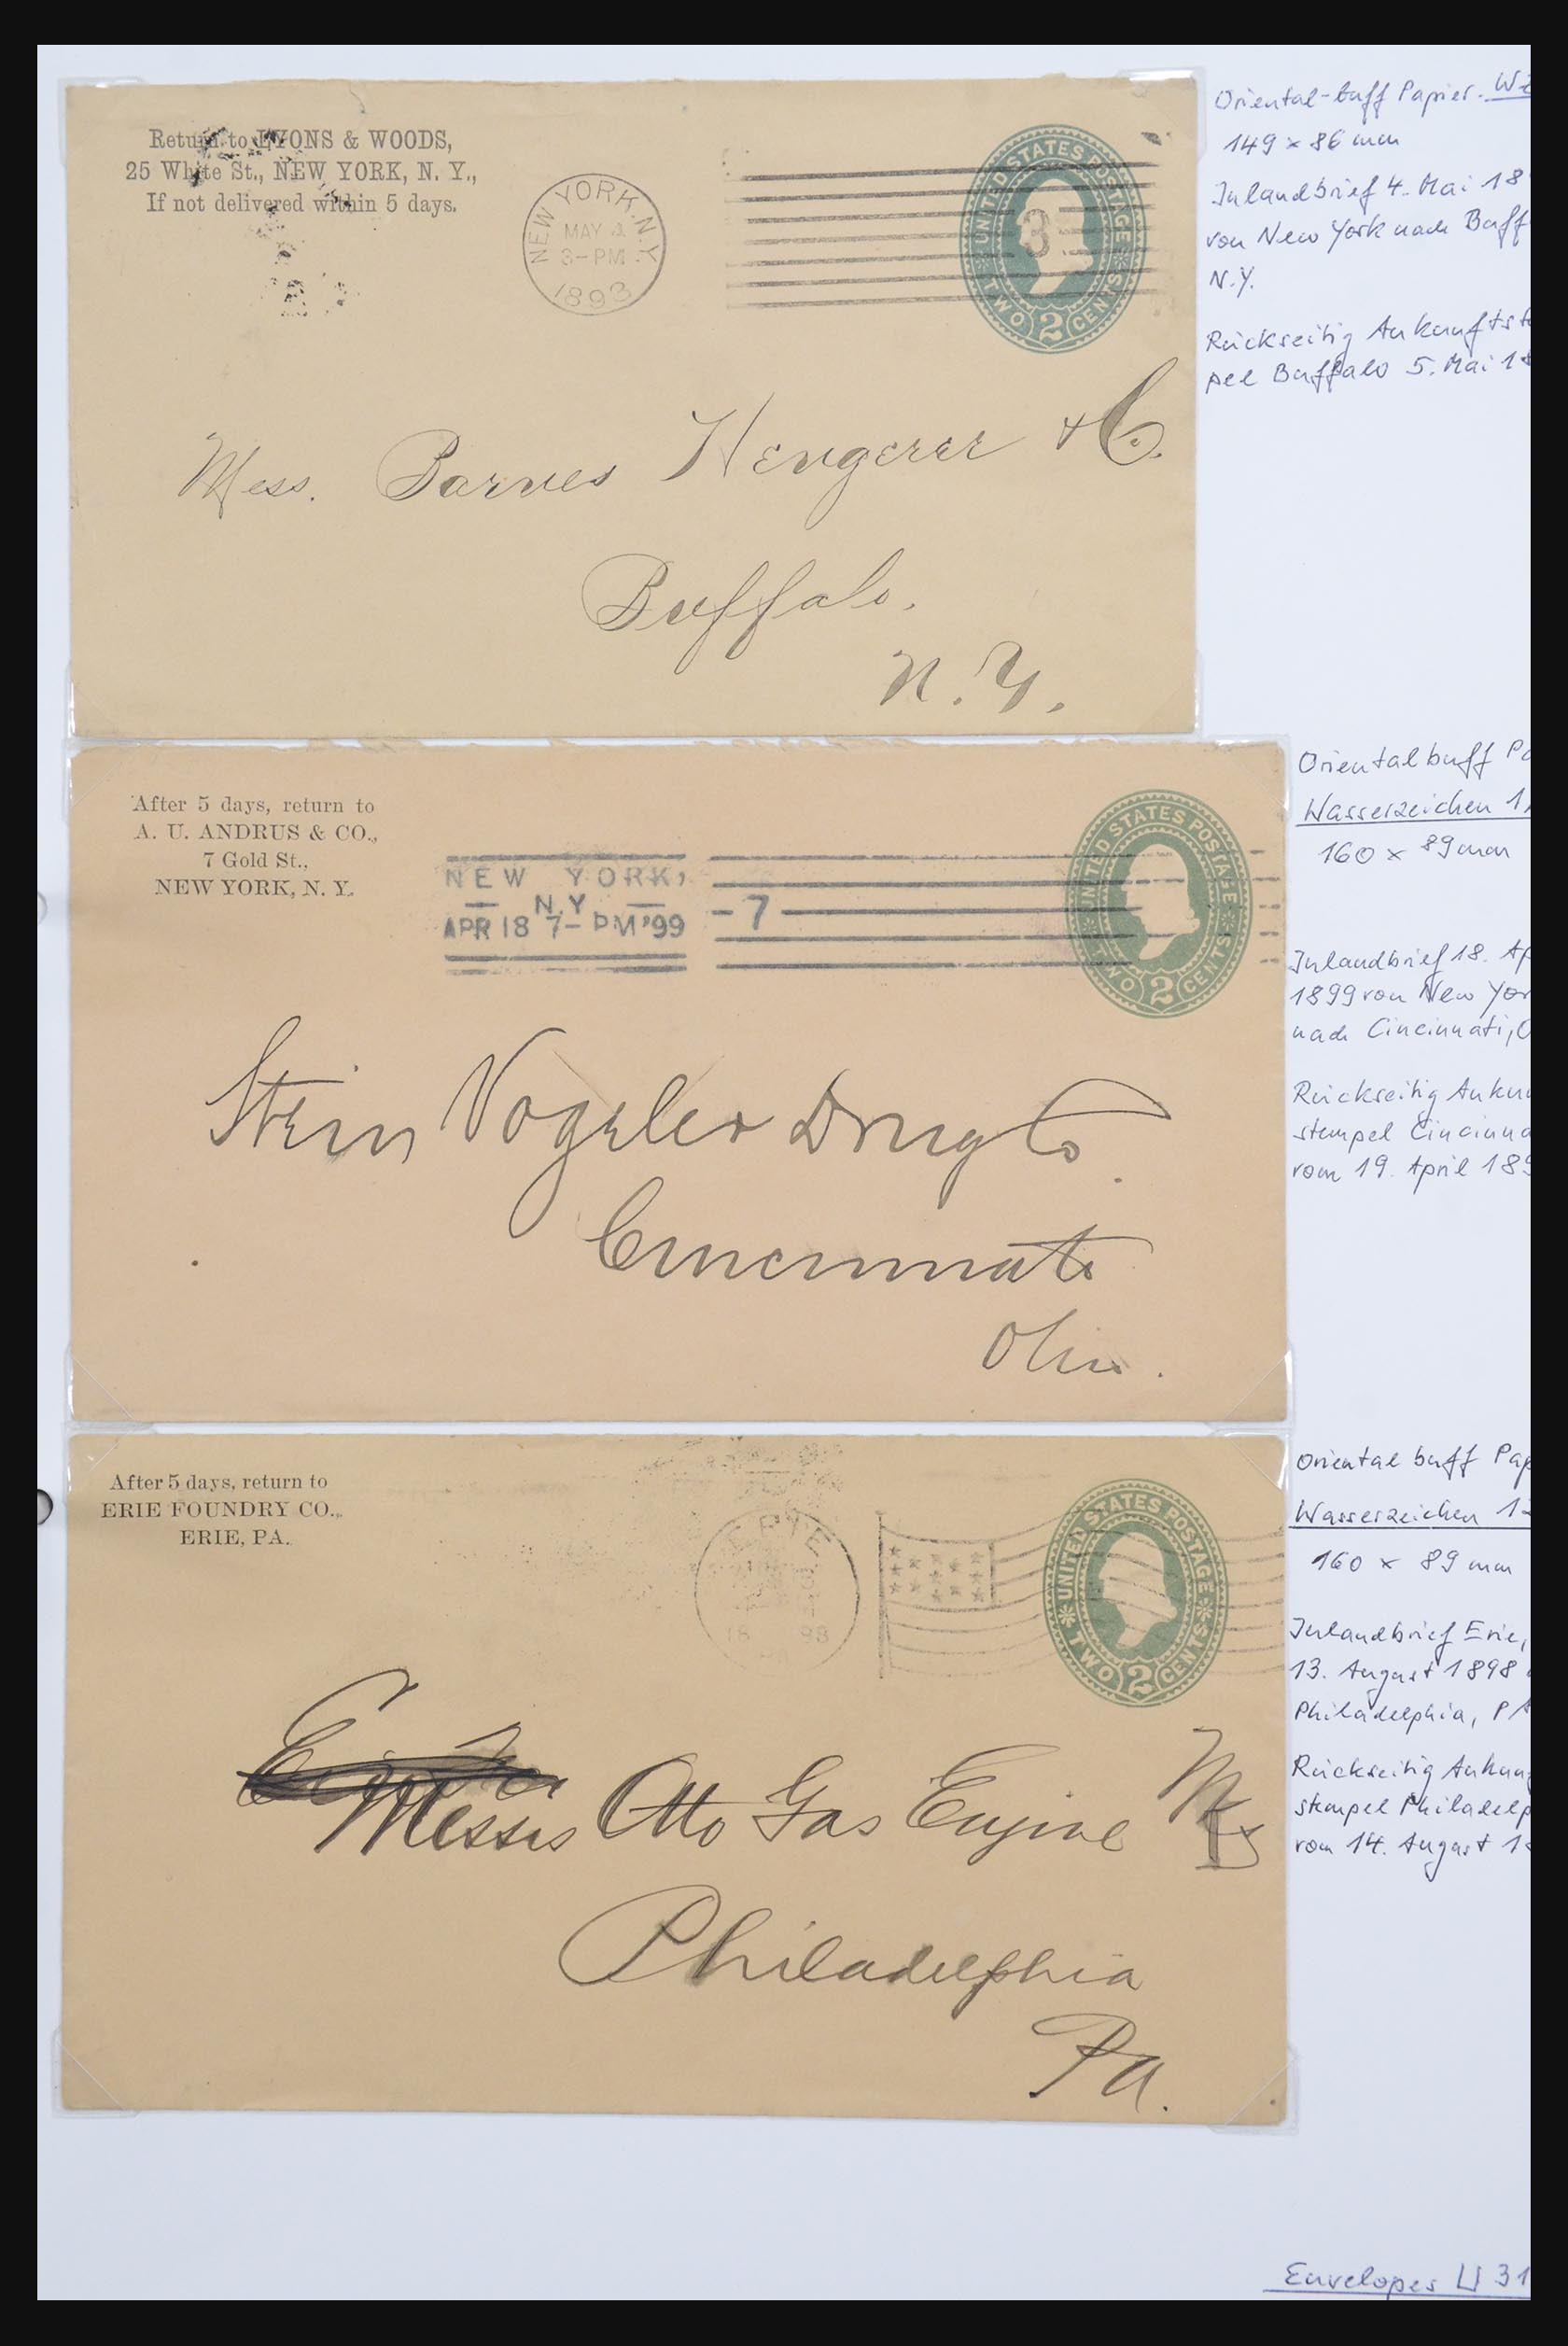 Return to LYONS & WOODS,
25 White St., NEW YORK, N. Y.,
If not delivered within 5 days.
NEW YORK, N.Y.
MAY 4
3-PM
1893
3
UNITED STATES POSTAGE
TWO 2 CENTS
Mess. Barnes Hengerer & Co.
Buffalo.
N.Y.
Oriental-buff Papier. WZ
149 x 86 mm
Inlandbrief 4. Mai 18
von New York nach Buff
N.Y.
Rückseitig Ankunftst
pel Buffalo 5. Mai 1
After 5 days, return to
A. U. ANDRUS & CO.,
7 Gold St.,
NEW YORK, N. Y.
NEW YORK,
N.Y.
APR 18 7-PM '99
7
UNITED STATES POSTAGE
TWO 2 CENTS
Stein Vogeler Drug Co
Cincinnati
Ohio.
Orientalbuff Pa
Wasserzeichen 1
160 x 89 mm
Inlandbrief 18. Ap
1899 von New Yor
nach Cincinnati, O
Rückseitig Anku
stempel Cincinna
vom 19. April 189
After 5 days, return to
ERIE FOUNDRY CO.,
ERIE, PA.
ERIE
18 98
UNITED STATES POSTAGE
TWO 2 CENTS
Messrs Otto Gas Engine
Philadelphia
Pa.
Oriental buff Pap
Wasserzeichen 1
160 x 89 mm
Inlandbrief Erie,
13. August 1898
Philadelphia, PA
Rückseitig Ankun
stempel Philadelp
vom 14. August 1
Envelopes U 31